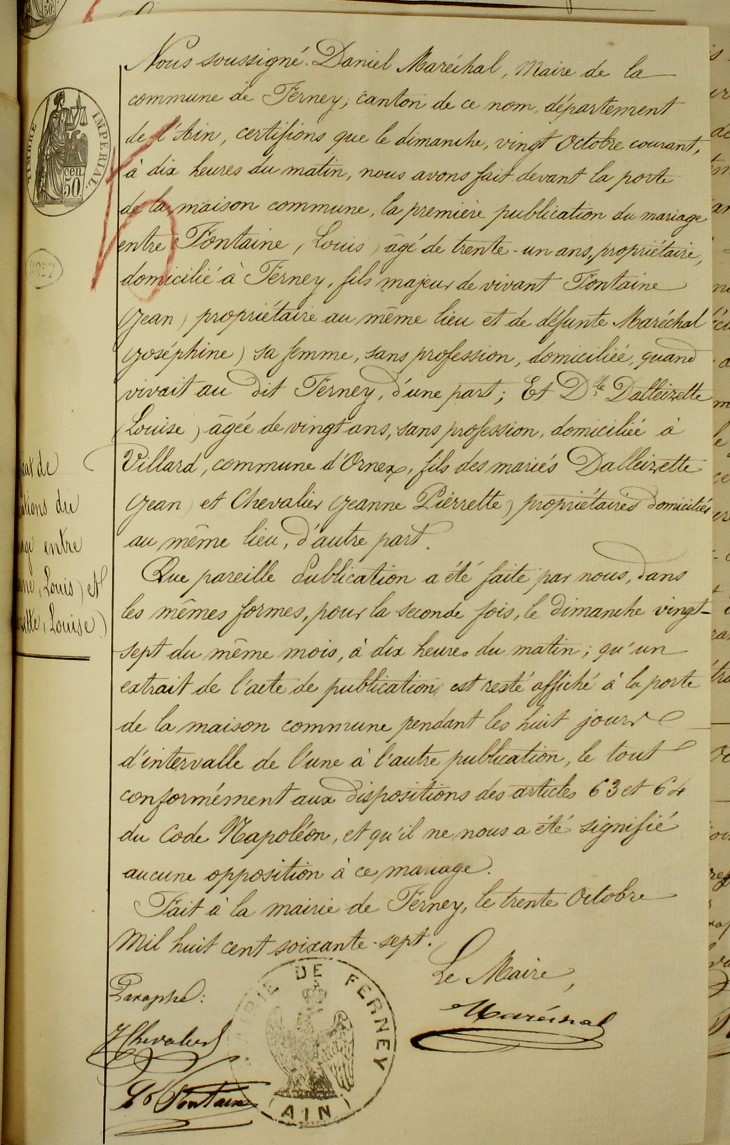 Nous soussigné Daniel Maréchal, Maire de la
commune de Ferney, canton de ce nom, département
de l'Ain, certifions que le dimanche, vingt Octobre courant,
à dix heures du matin, nous avons fait devant la porte
de la maison commune, la première publication du mariage
entre Fontaine, (Louis) âgé de trente-un ans, propriétaire,
domicilié à Ferney, fils majeur de vivant Fontaine
(Jean) propriétaire au même lieu et de défunte Maréchal
(Joséphine) sa femme, sans profession, domiciliée, quand
vivait au dit Ferney, d'une part; Et Dlle Dalleizette
(Louise) âgée de vingt ans, sans profession, domiciliée à
Villard, commune d'Ornex, fils des mariés Dalleizette
(Jean) et Chevalier (Jeanne Pierrette) propriétaires domiciliés
au même lieu, d'autre part.
Que pareille Publication a été faite par nous, dans
les mêmes formes, pour la seconde fois, le dimanche vingt-
sept du même mois, à dix heures du matin; qu'un
extrait de l'acte de publication est resté affiché à la porte
de la maison commune pendant les huit jours
d'intervalle de l'une à l'autre publication, le tout
conformément aux dispositions des articles 63 et 64
du Code Napoléon, et qu'il ne nous a été signifié
aucune opposition à ce mariage.
Fait à la mairie de Ferney, le trente Octobre
Mil huit cent soixante-sept.
Le Maire,
Maréchal
Paraphé:
J Chevalier
Ls Fontaine
MAIRIE DE FERNEY
(AIN)
TIMBRE IMPERIAL
50 cen
entre
Louis) et
Louise)